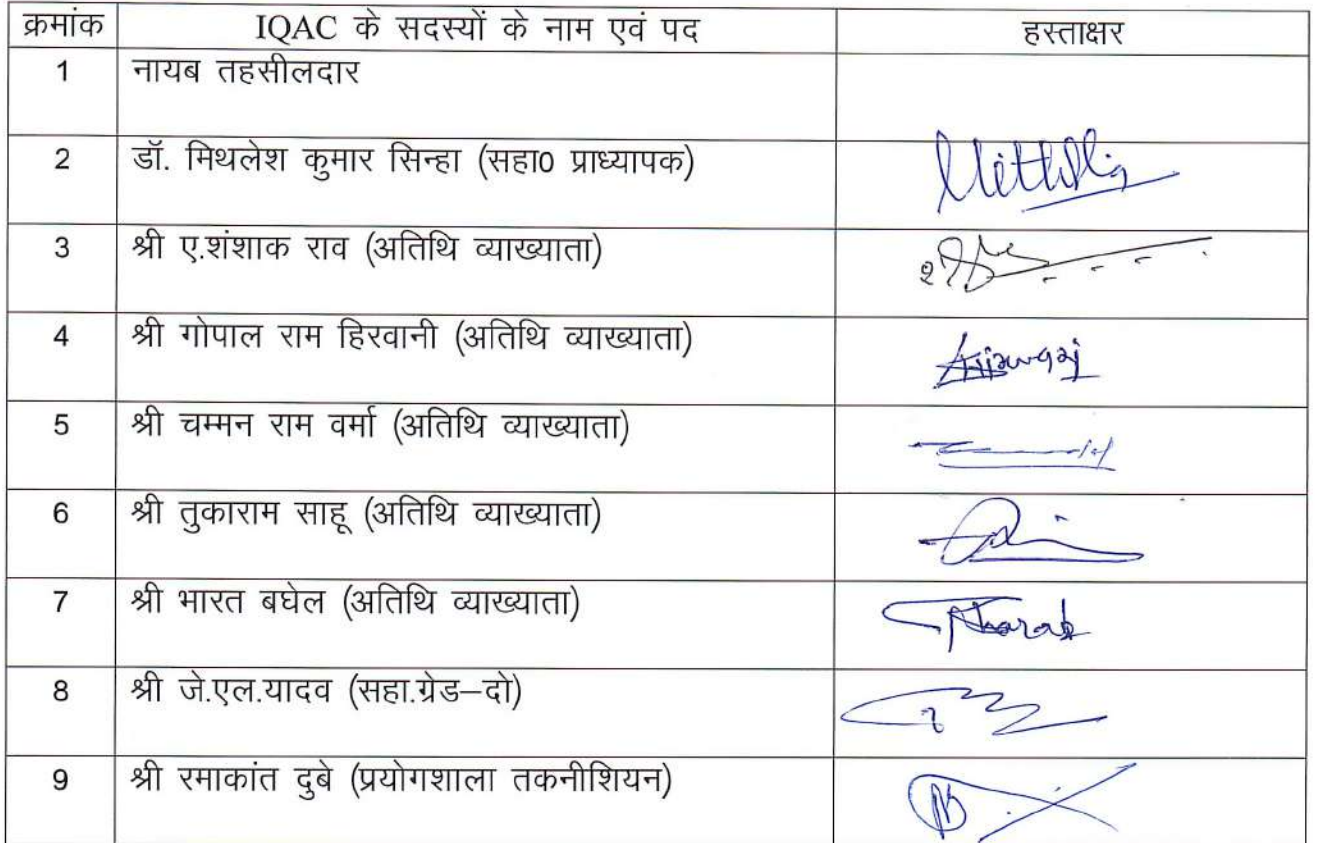 क्रमांक IQAC के सदस्यों के नाम एवं पद हस्ताक्षर
1 नायब तहसीलदार
2 डॉ. मिथलेश कुमार सिन्हा (सहा0 प्राध्यापक)
3 श्री ए.शंशाक राव (अतिथि व्याख्याता)
4 श्री गोपाल राम हिरवानी (अतिथि व्याख्याता)
5 श्री चम्मन राम वर्मा (अतिथि व्याख्याता)
6 श्री तुकाराम साहू (अतिथि व्याख्याता)
7 श्री भारत बघेल (अतिथि व्याख्याता)
8 श्री जे.एल.यादव (सहा.ग्रेड–दो)
9 श्री रमाकांत दुबे (प्रयोगशाला तकनीशियन)